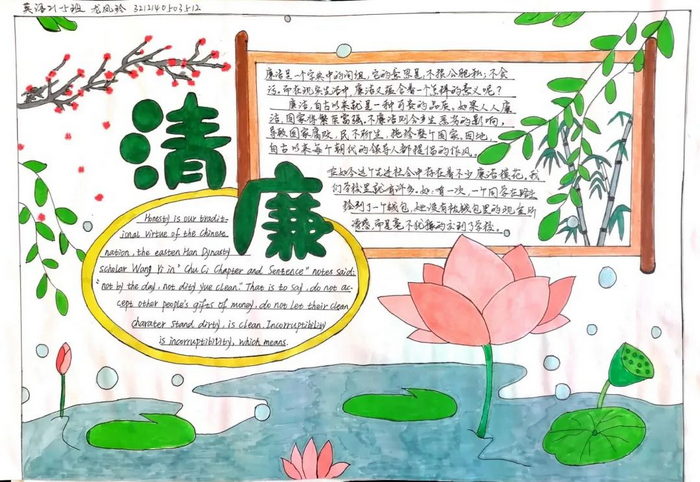 英语21-5班 龙凤玲 3212140503512
清
廉
廉洁是一个字典中的词组,它的意思是,不损公肥私;不贪
污,而在现实生活中,廉洁又蕴含着一个怎样的意义呢?
廉洁,自古以来就是一种可贵的品质,如果人人廉
洁,国家将繁荣富强,不廉洁则会产生恶劣的影响,
导致国家腐败,民不聊生,拖垮整个国家,因此,
自古以来每个朝代的领导人都提倡的作风。
在如今这个先进社会中存在着不少廉洁模范,我
们学校里就有许多。如:有一次,一个同学在路上
捡到了一个钱包,她没有被钱包里的现金所
诱惑,而是毫不犹豫的交到了学校。
Honesty is our tradit-
ional virtue of the Chinese
nation, the easten Han Dynasty
scholar Wang Yi in" Chu Ci Chapter and Sentence" notes said:
"not by the day, not dirty yue clean." That is to say, do not ac-
cept other people's gifts of money, do not let their clean
charater stand dirty, is clean. Incorruptibility
is incorruptibility, which means.